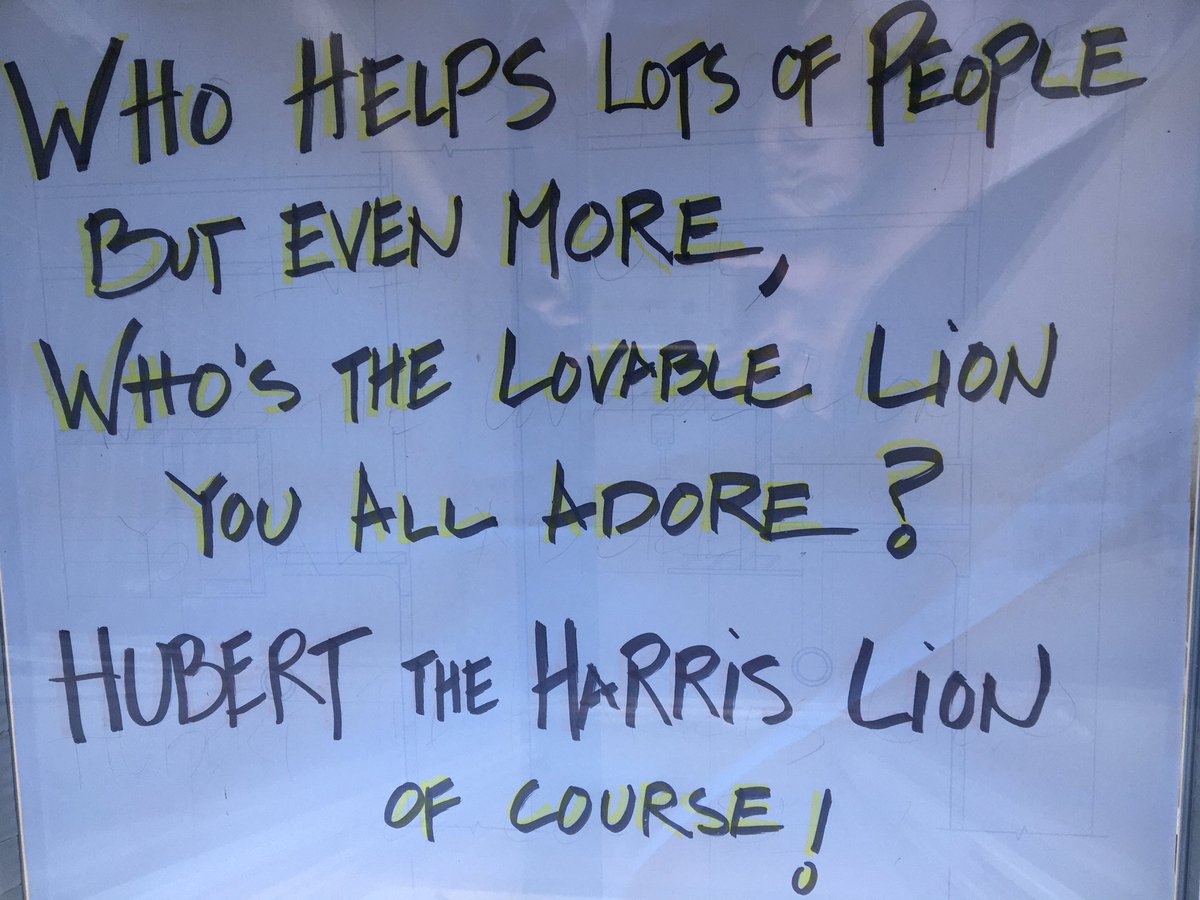 WHO HELPS LOTS OF PEOPLE
BUT EVEN MORE,
WHO'S THE LOVABLE LION
YOU ALL ADORE?
HUBERT THE HARRIS LION
OF COURSE!